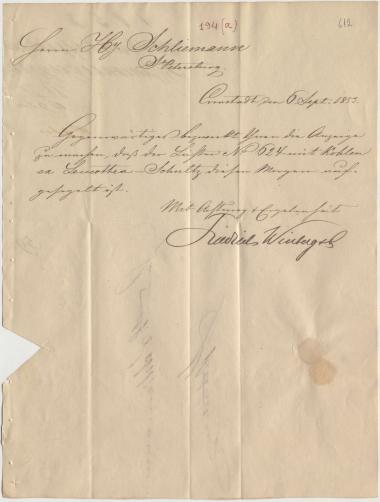 194 (a)
612
Herrn Hy. Schliemann
St Petersburg.
Cronstadt den 6 Sept. 1853.
Gegenwärtiges bezweckt Ihnen die Anzeige
zu machen, daß der Lichter No 624 mit Kohlen
ex Leucothea - Schultz diesen Morgen auf-
gesegelt ist.
Mit Achtung & Ergebenheit